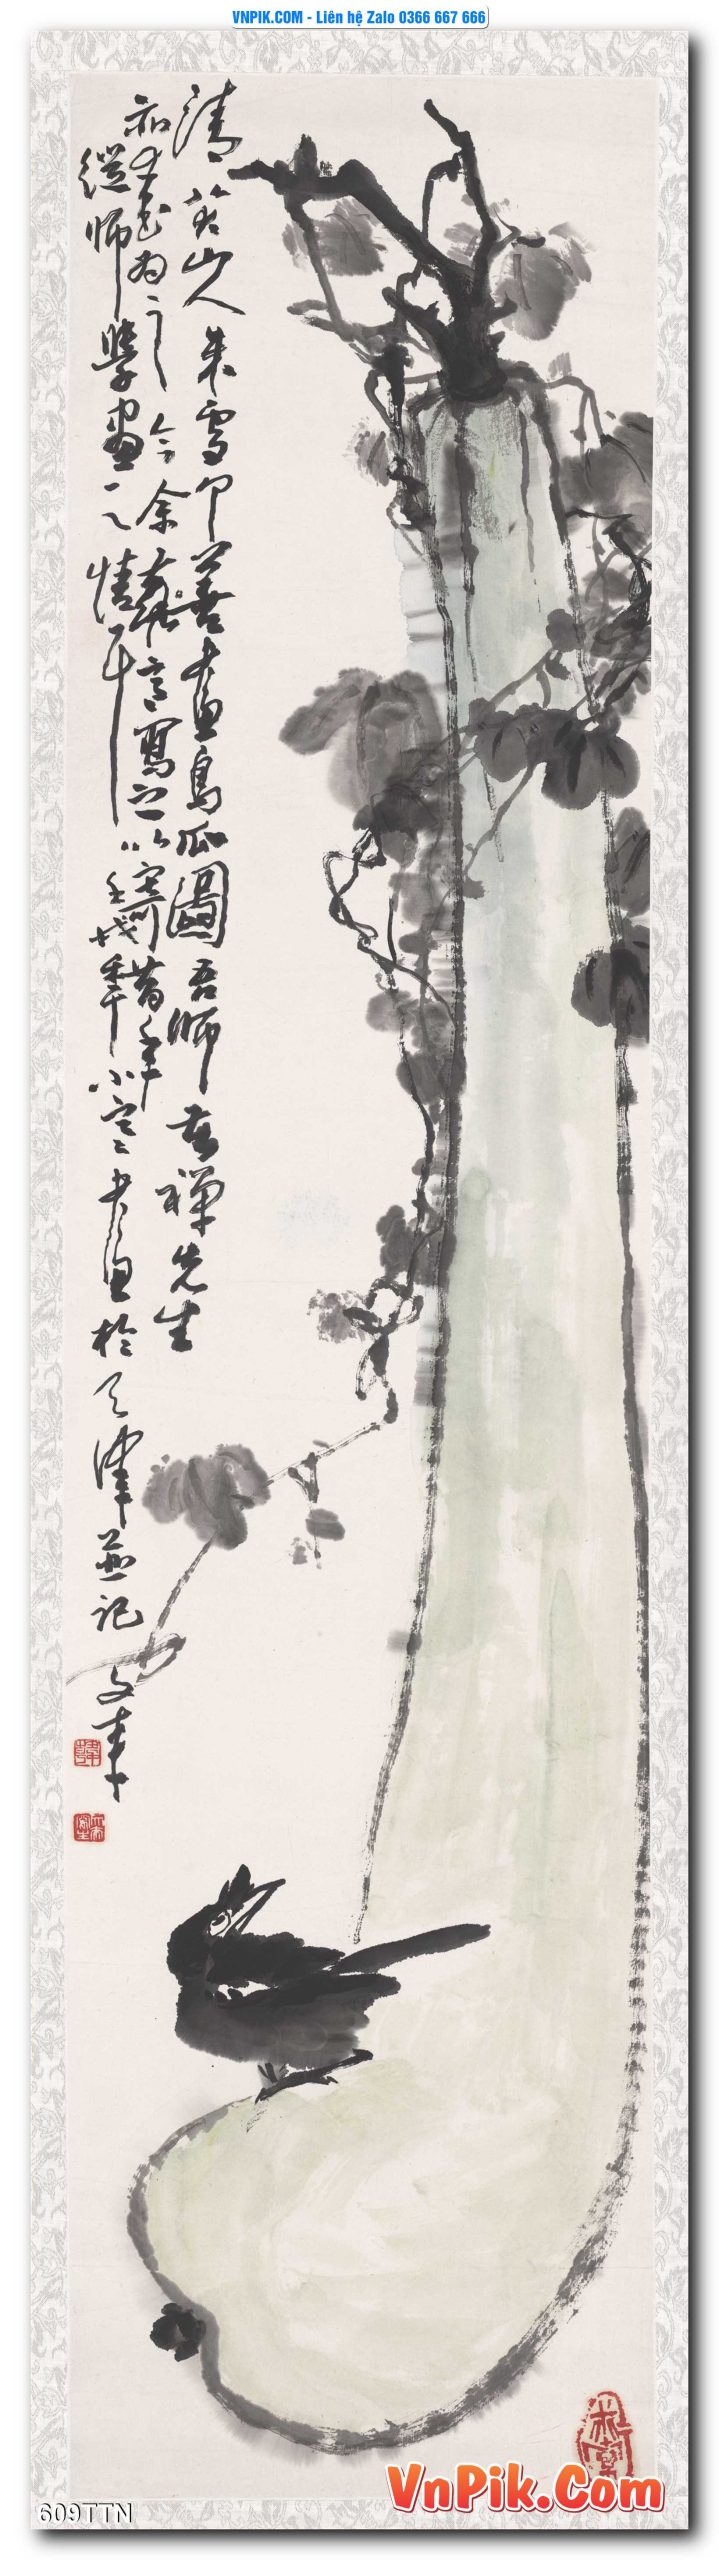 VNPIK.COM - Liên hệ Zalo 0366 667 666
清八大山人朱雪个善畫鳥瓜圖吾師苦禪先生
亦為之今余寫之以寄昔年
從師學畫之情耳壬戌年小寒畫於天津並記
VnPik.Com
609TTN